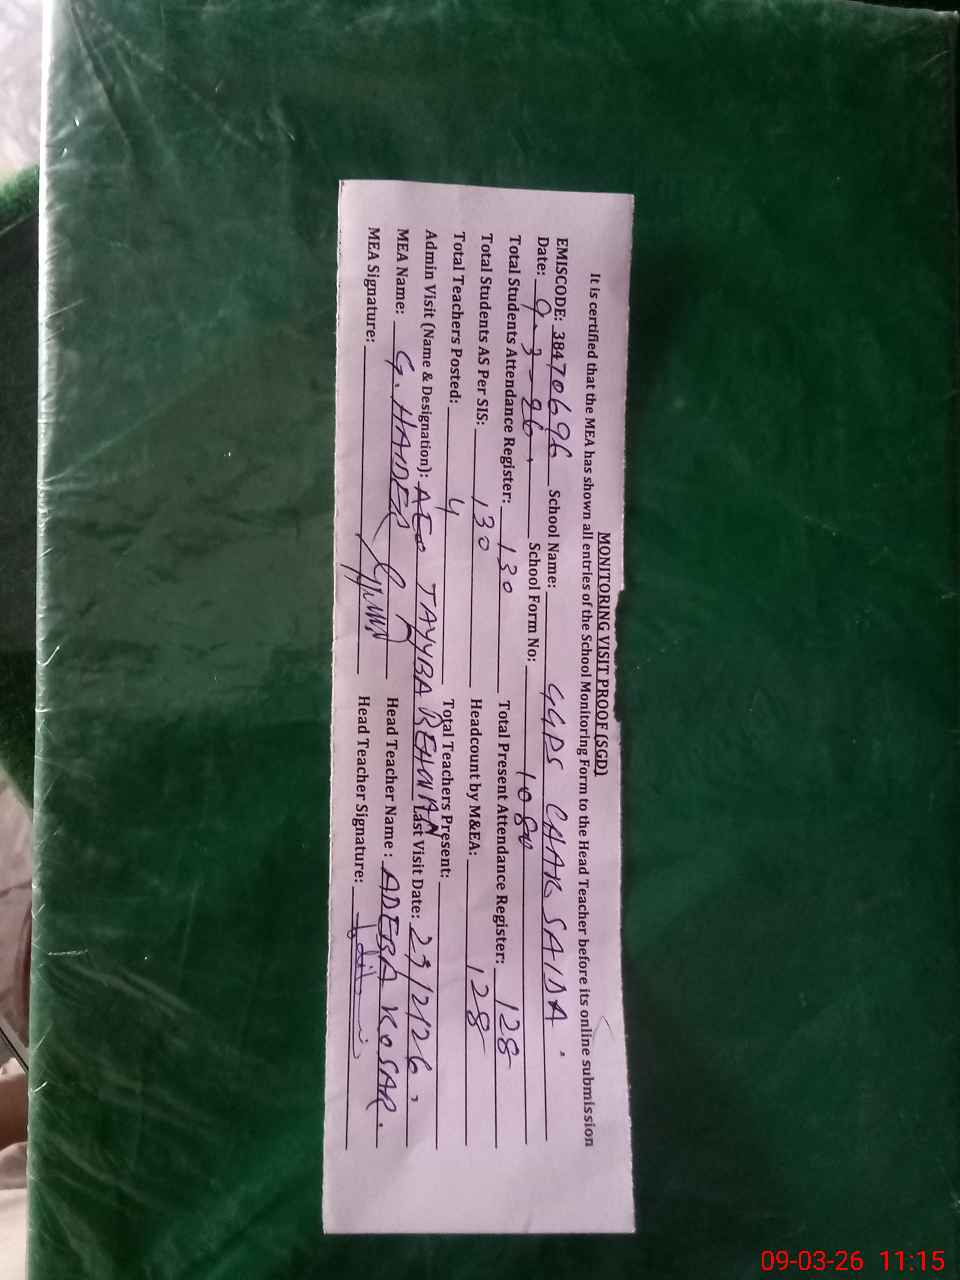 MONITORING VISIT PROOF (SGD)
It is certified that the MEA has shown all entries of the School Monitoring Form to the Head Teacher before its online submission
EMISCODE: 38470696 School Name: GGPS CHAK SAIDA.
Date: 9-3-26. School Form No: 1080
Total Students Attendance Register: 130 Total Present Attendance Register: 128
Total Students AS Per SIS: 130 Headcount by M&EA: 128
Total Teachers Posted: 4 Total Teachers Present:
Admin Visit (Name & Designation): AEO TAYYBA REHMAN Last Visit Date:
MEA Name: G. HAIDER Head Teacher Name: KOSAR.
MEA Signature: Head Teacher Signature:
09-03-26 11:15